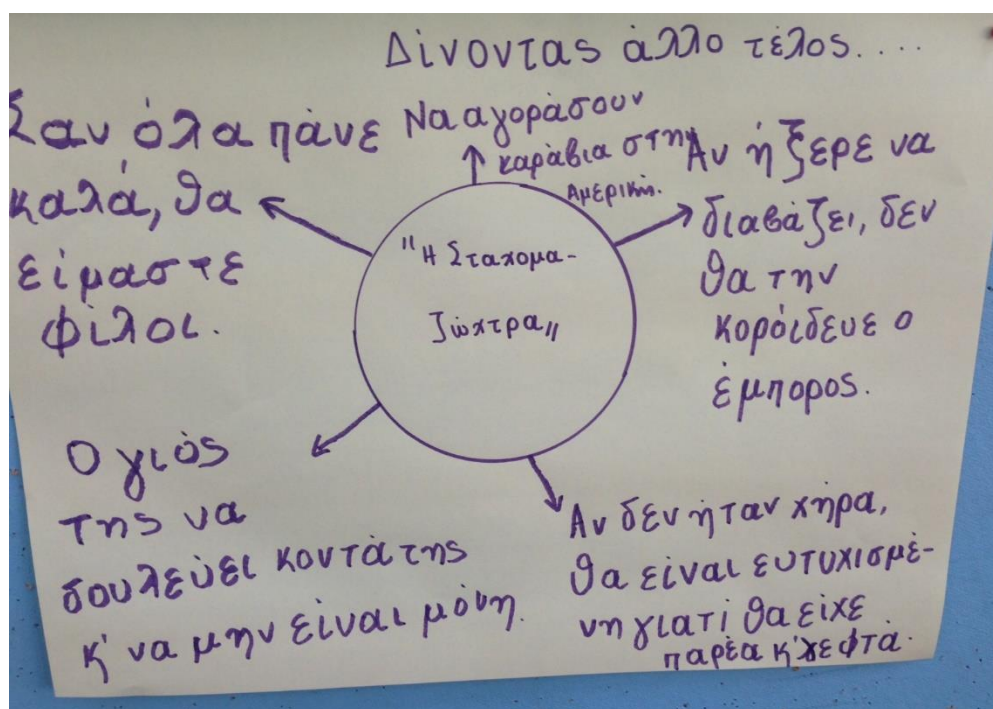 Δίνοντας άλλο τέλος....
Σαν όλα πάνε
καλά, θα
είμαστε
φίλοι.
Να αγοράσουν
καράβια στην
Αμερική.
Αν ή ξερε να
διαβάζει, δεν
θα την
κορόιδευε ο
έμπορος.
"Η Σταχομα-
ζώχτρα"
Ο γιός
της να
δουλεύει κοντά της
κ' να μην είναι μόνη.
Αν δεν ήταν χήρα,
θα είναι ευτυχισμέ-
νη γιατί θα είχε
παρέα κ' λεφτά.